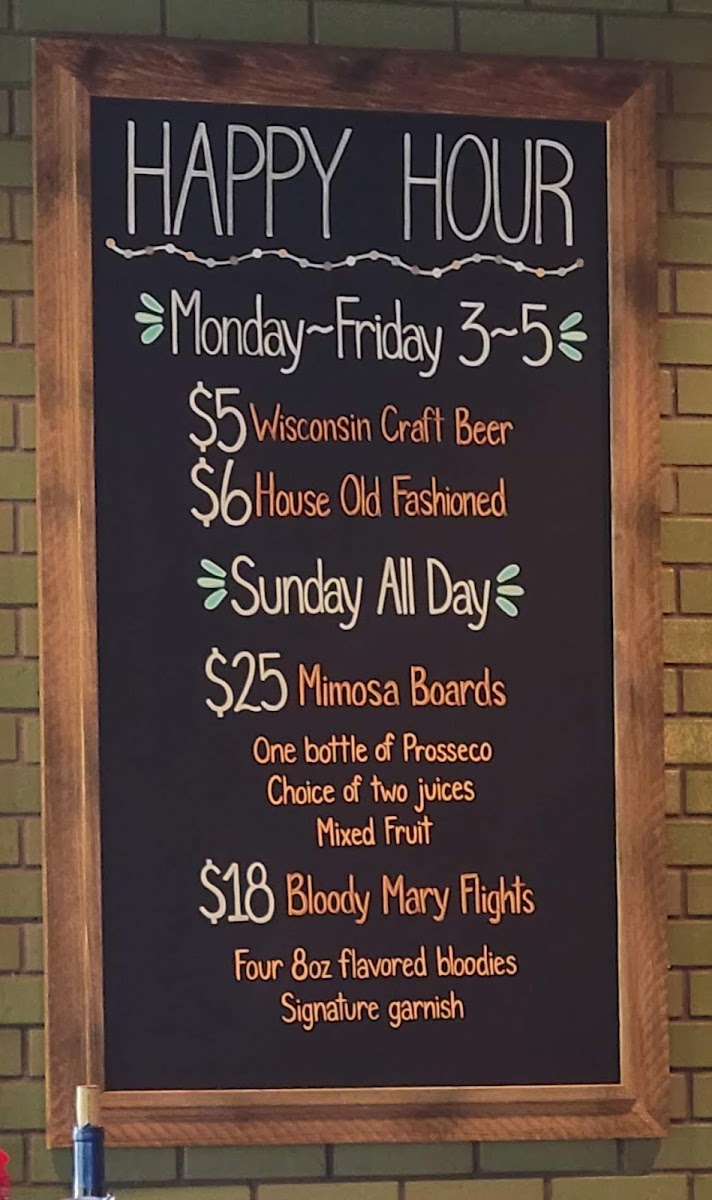 HAPPY HOUR
Monday~Friday 3~5
$5 Wisconsin Craft Beer
$6 House Old Fashioned
Sunday All Day
$25 Mimosa Boards
One bottle of Prosseco
Choice of two juices
Mixed Fruit
$18 Bloody Mary Flights
Four 8oz flavored bloodies
Signature garnish